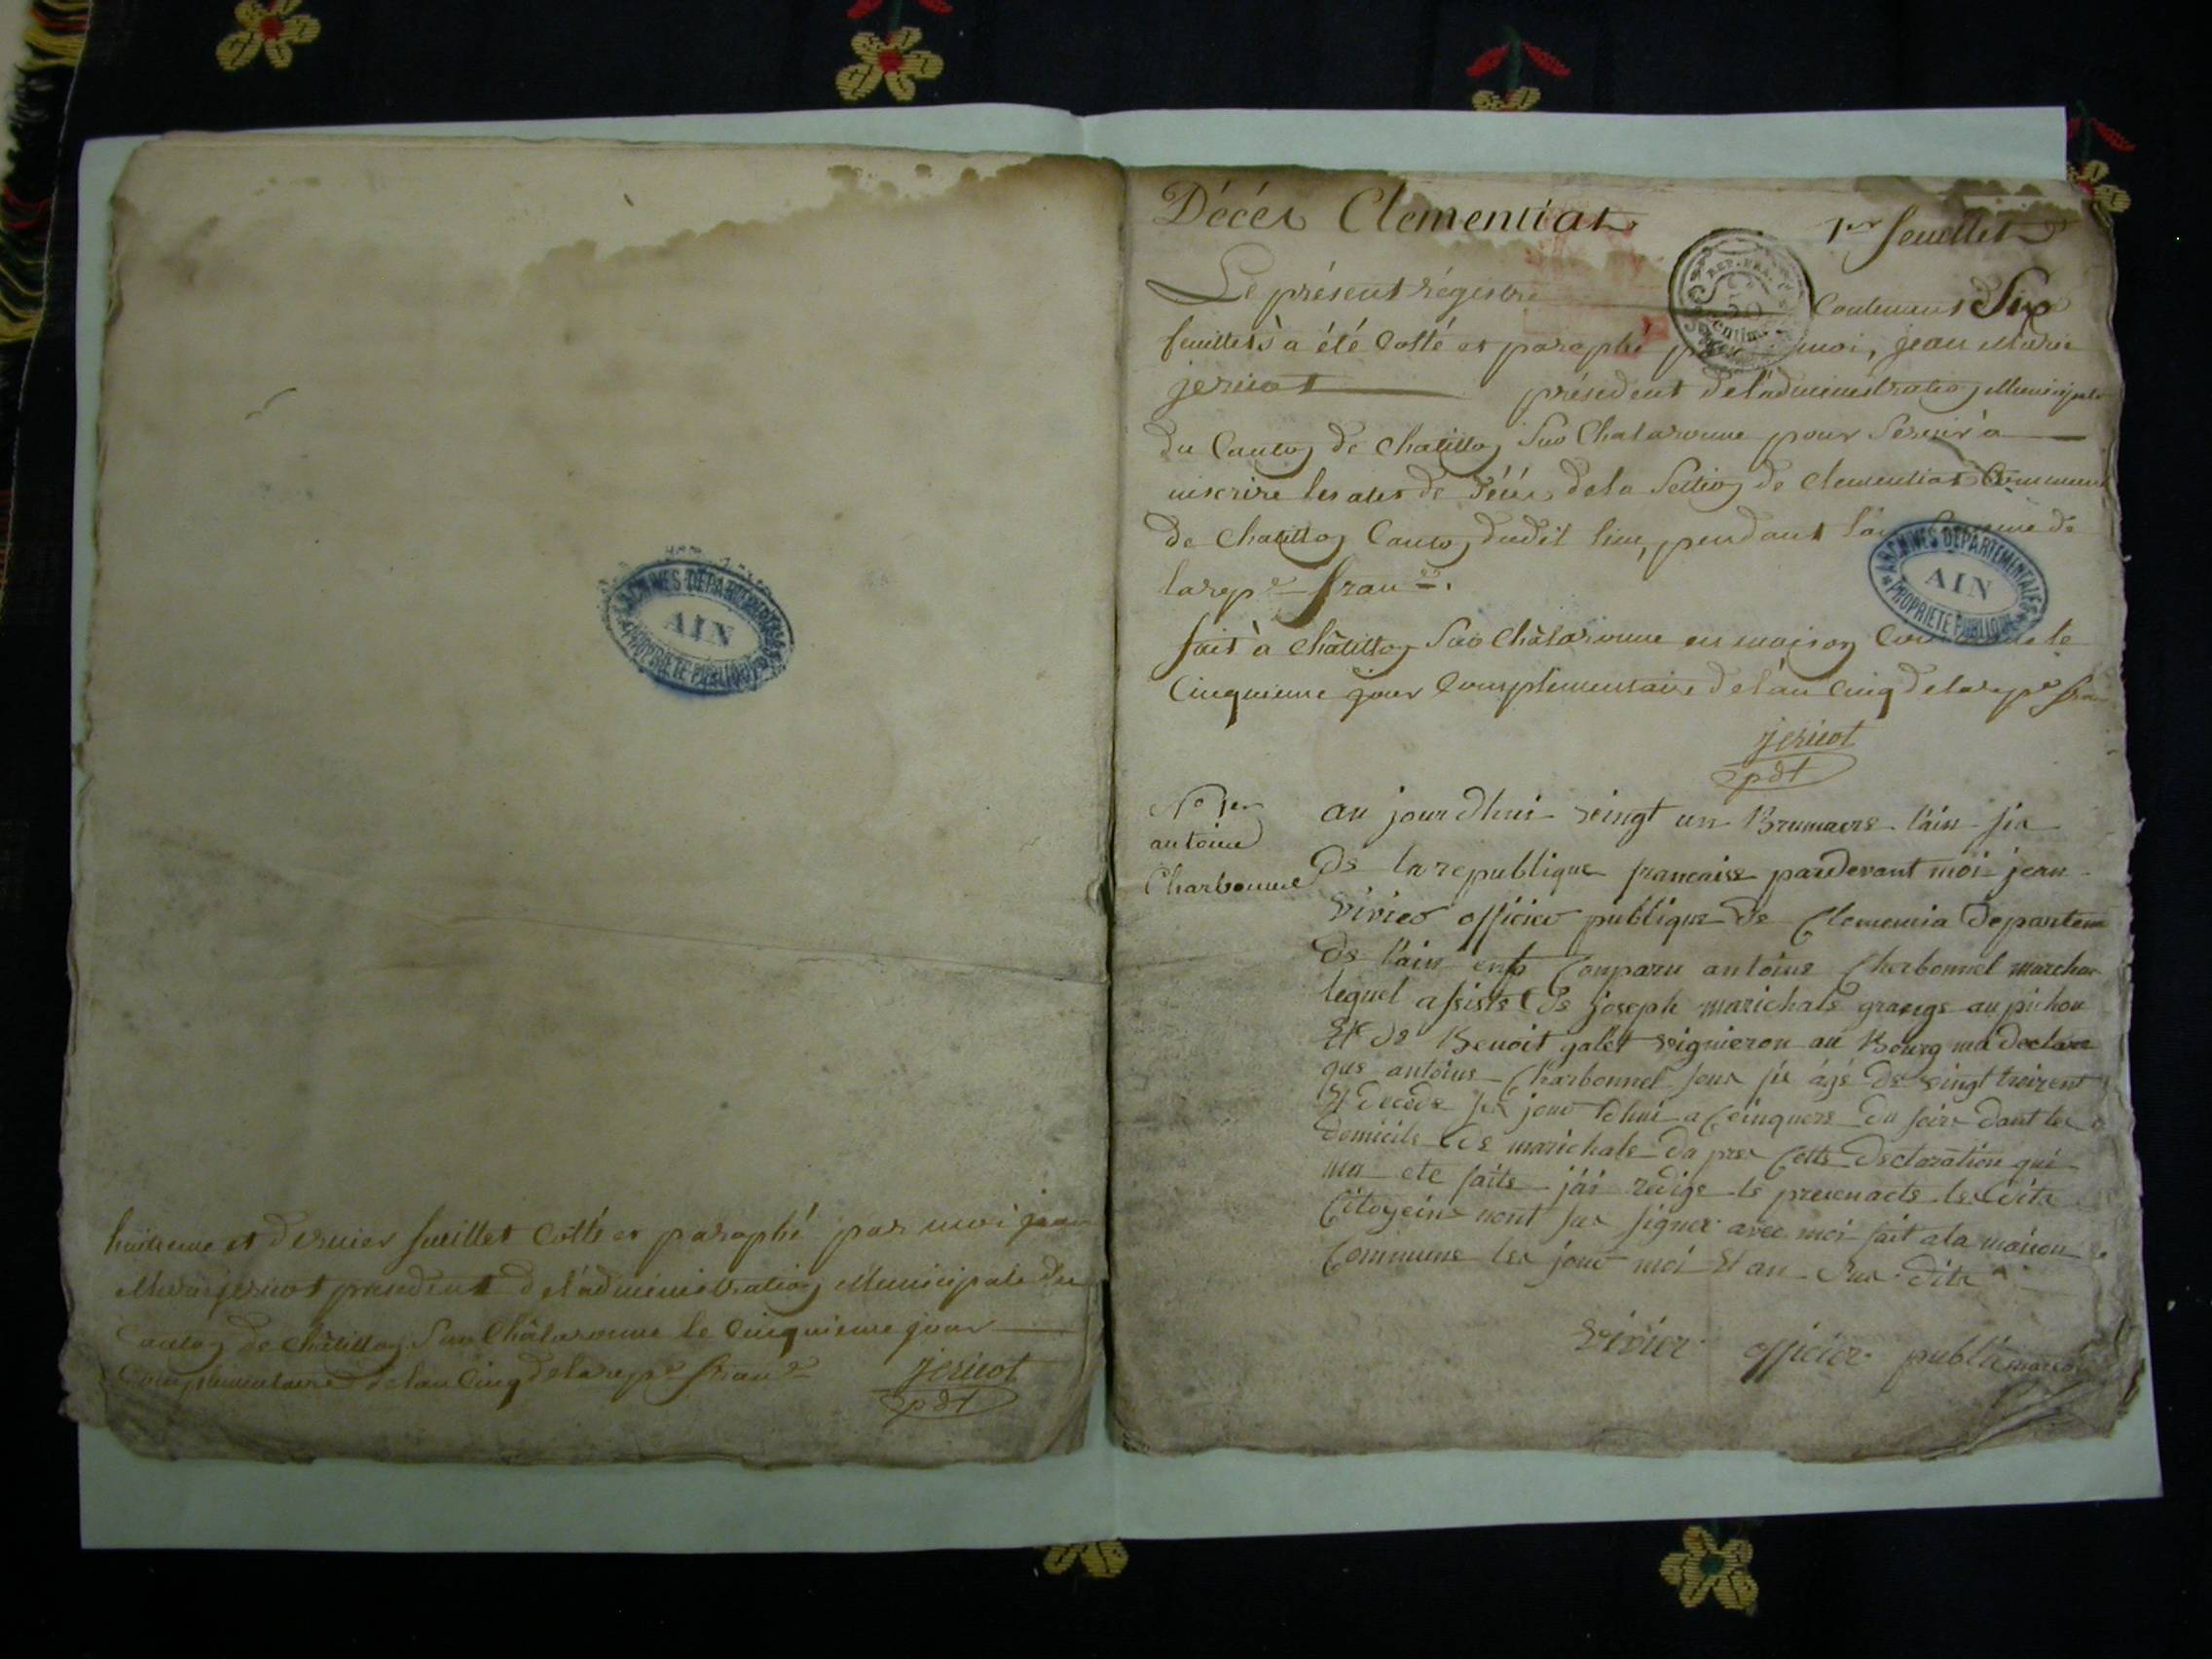 huitieme et dernier feuillet Cotté et paraphé par moi jean
Marie jericot president de l'administration Municipale du
Canton de Châtillon Sur Châlaronne le Cinquieme jour
Complementaire de l'an Cinq de la rep.e fran.se
jericot
pdt
ARCHIVES DEPARTEMENTALES
AIN
PROPRIETE PUBLIQUE
Décès Clementiat
1er feuillet
Le présent régistre Contenant Six
REP. FRA.
50
Centime
feuillets a été Cotté et paraphé par moi, jean Marie
jericot président de l'administration Municipale
du Canton de Chatillon Sur Chalaronne pour Servir à
inscrire les actes de décès de la Section de Clementiat Commune
de Chatillon Canton dudit lieu, pendant l'an de
la rep.e fran.se.
ARCHIVES DEPARTEMENTALES
AIN
PROPRIETE PUBLIQUE
fait à Châtillon Sur Châlaronne en maison Commune le
Cinquieme jour Complementaire de l'an Cinq de la rep.e fran
jericot
pdt
No 1er
antoine
Charbonnel
au jour dhui vingt un Brumaire l'ain six
de la republique francaise pardevant moi jean
vivier officier publique de Clemencia departem
de l'ain Comparu antoine Cherbonnel marchan
lequel assisté de joseph marichale grange au pichon
Et de Benoit galet vigneron au Bourg ma declare
que antoine Charbonnel son fis âgé de vingt
Et decede jour dhui a Cinquers du soire dant le
domicile de marichale da pres Cette declaration qui
ma ete faite j'ai redige le presenacte les dits
Citoyeins nont sus signer avec moi fait a la maison
Commune les jour moi Et an sus dits
vivier officier public